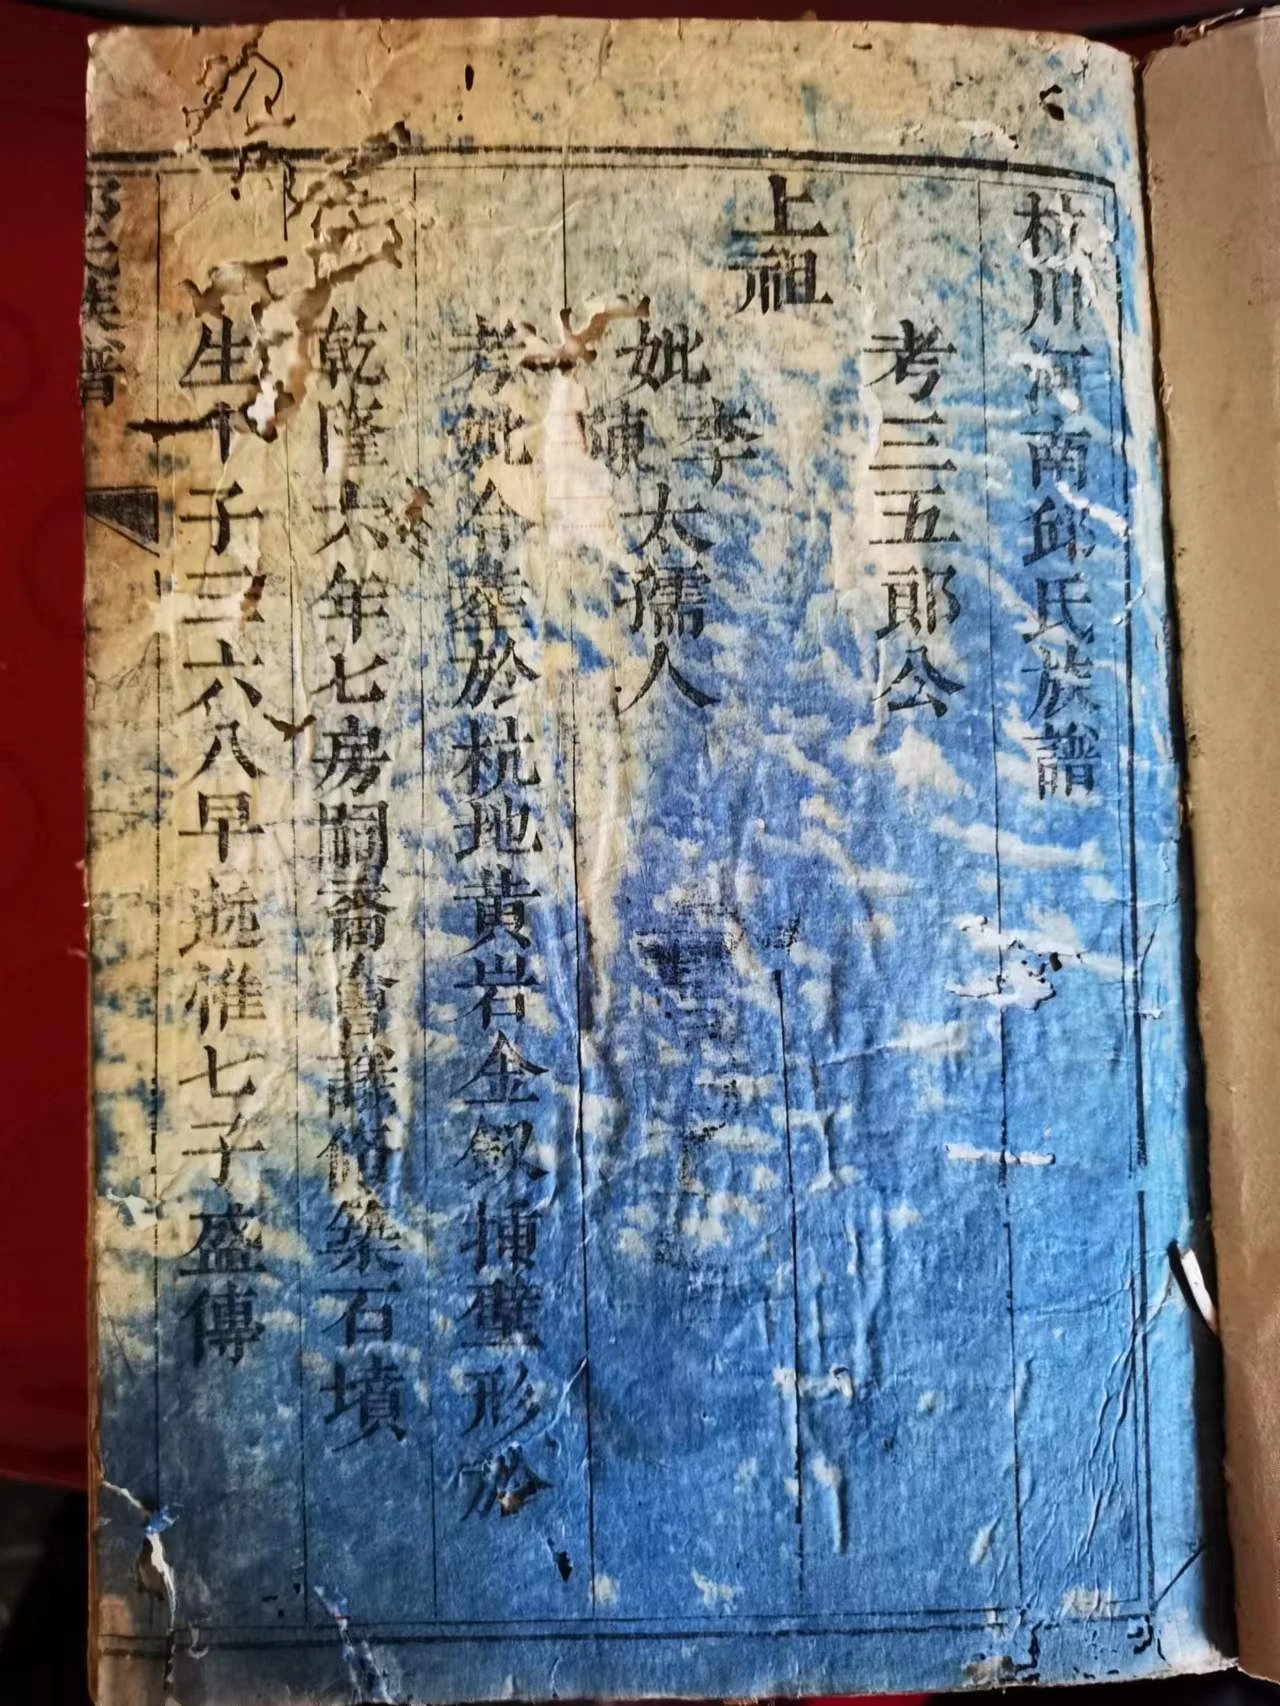 杭川河南邱氏族譜
考三五郎公
上祖
妣李陳太孺人
考妣合塟於杭地黄岩金釵挿壁形於
乾隆六年七房嗣裔會議修築石墳
生十子三六八早逝惟七子盛傳
邱氏族譜